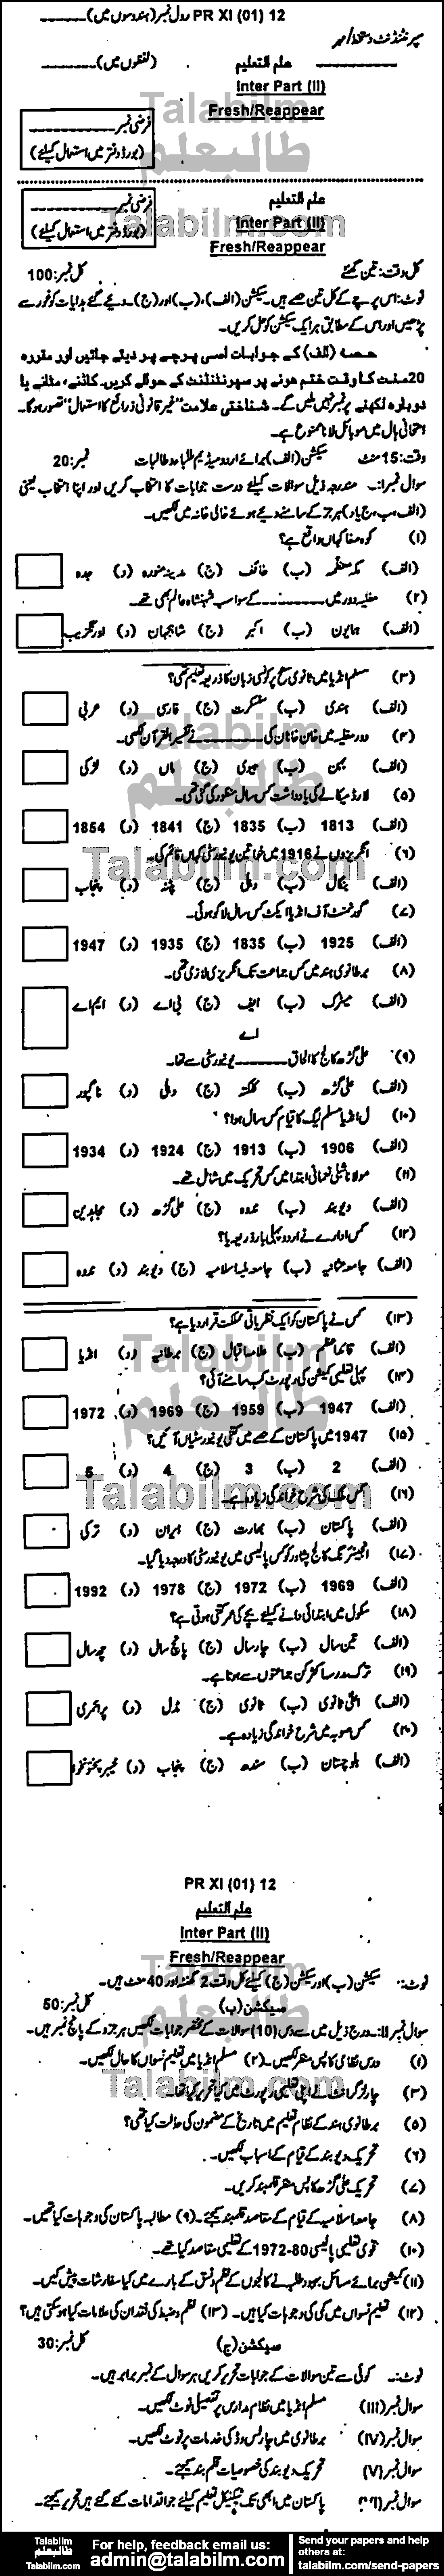 PR XI (01) 12 رول نمبر (ہندسوں میں)
سپرنٹنڈنٹ دستخط/مہر
علم التعلیم (لفظوں میں)
Inter Part (II)
Talabilm
Fresh/Reappear
طالبعلم
فرضی نمبر
(بورڈ دفتر میں استعمال کیلئے)
علم التعلیم
فرضی نمبر
Talabilm.com
Inter Part (II)
(بورڈ دفتر میں استعمال کیلئے)
Fresh/Reappear
کل وقت: تین گھنٹے کل نمبر: 100
نوٹ: اس پرچے کے کل تین حصے ہیں۔ سیکشن (الف)، (ب) اور (ج)۔ دیئے گئے ہدایات کو غور سے
پڑھیں اور اس کے مطابق ہر ایک سیکشن کو حل کریں۔
حصہ (الف) کے جوابات اسی پرچے پر دیئے جائیں اور مقررہ
20 منٹ کا وقت ختم ہونے پر سپرنٹنڈنٹ کے حوالے کریں۔ کاٹنے، مٹانے یا
دوبارہ لکھنے پر نمبر نہیں ملیں گے۔ شناختی علامت "غیر قانونی ذرائع کا استعمال" تصور ہوگا۔
امتحانی ہال میں موبائل لانا ممنوع ہے۔
وقت: 15 منٹ سیکشن (الف) برائے اردو میڈیم طلباء و طالبات نمبر: 20
سوال نمبر I:۔ مندرجہ ذیل سوالات کیلئے درست جوابات کا انتخاب کریں اور اپنا انتخاب یعنی
(الف، ب، ج یا د) ہر جز کے سامنے دیئے ہوئے خالی خانہ میں لکھیں۔
(۱) کوہ صفا کہاں واقع ہے؟
(الف) مکہ معظمہ (ب) طائف (ج) مدینہ منورہ (د) جدہ
(۲) مغلیہ دور میں کے سوا سب شہنشاہ عالم بھی تھے۔
(الف) ہمایون (ب) اکبر (ج) شاہجہان (د) اورنگزیب
(۳) مسلم انڈیا میں ثانوی سطح پر کونسی زبان کا ذریعہ تعلیم تھی؟
(الف) ہندی (ب) سنسکرت (ج) فارسی (د) عربی
(۴) دور مغلیہ میں خان خانان کی نے تفسیر القرآن لکھی۔
(الف) بہن (ب) بیوی (ج) ماں (د) لڑکی
(۵) لارڈ میکالے کی یادداشت کس سال منظور کی گئی تھی۔
(الف) 1813 (ب) 1835 (ج) 1841 (د) 1854
(۶) انگریزوں نے 1916 میں خواتین یونیورسٹی کہاں قائم کی۔
(الف) بنگال (ب) دہلی (ج) پٹنہ (د) پنجاب
(۷) گورنمنٹ آف انڈیا ایکٹ کس سال لاگو ہوئی۔
(الف) 1925 (ب) 1835 (ج) 1935 (د) 1947
(۸) برطانوی ہند میں کس جماعت تک انگریزی لازمی تھی۔
(الف) میٹرک (ب) ایف اے (ج) بی اے (د) ایم اے
(۹) علی گڑھ کالج کا الحاق یونیورسٹی سے تھا۔
(الف) علی گڑھ (ب) کلکتہ (ج) دہلی (د) ناگپور
(۱۰) ل انڈیا مسلم لیگ کا قیام کس سال ہوا؟
(الف) 1906 (ب) 1913 (ج) 1924 (د) 1934
(۱۱) مولانا شبلی نعمانی ابتدا میں کس تحریک میں شامل تھے۔
(الف) دیوبند (ب) ندوہ (ج) علی گڑھ (د) مجاہدین
(۱۲) کس ادارے نے اردو پہلی بار ذریعہ بنایا؟
(الف) جامعہ عثمانیہ (ب) جامعہ ملیہ اسلامیہ (ج) دیوبند (د) ندوہ
(۱۳) کس نے پاکستان کو ایک نظریاتی مملکت قرار دیا ہے؟
(الف) قائداعظم (ب) علامہ اقبال (ج) برطانیہ (د) انڈیا
(۱۴) پہلی تعلیمی کمیشن کی رپورٹ کب سامنے آئی؟
(الف) 1947 (ب) 1959 (ج) 1969 (د) 1972
(۱۵) 1947 میں پاکستان کے حصے میں کتنی یونیورسٹیاں آئیں؟
(الف) 2 (ب) 3 (ج) 4 (د) 5
(۱۶) کس ملک کی شرح خواندگی زیادہ ہے۔
(الف) پاکستان (ب) بھارت (ج) ایران (د) ترکی
(۱۷) انجینئرنگ کالج پشاور کو کس پالیسی میں یونیورسٹی کا درجہ دیا گیا۔
(الف) 1969 (ب) 1972 (ج) 1978 (د) 1992
(۱۸) سکول میں ابتدائی داخلے کیلئے بچے کی عمر کتنی ہوتی ہے؟
(الف) تین سال (ب) چار سال (ج) پانچ سال (د) چھ سال
(۱۹) ترک مدرسہ اکثر کن جماعتوں سے ہوتا ہے۔
(الف) اعلیٰ ثانوی (ب) ثانوی (ج) مڈل (د) پرائمری
(۲۰) کس صوبہ میں شرح خواندگی زیادہ ہے۔
(الف) بلوچستان (ب) سندھ (ج) پنجاب (د) خیبر پختونخوا
PR XI (01) 12
علم التعلیم
Inter Part (II)
Fresh/Reappear
نوٹ:۔ سیکشن (ب) اور سیکشن (ج) کیلئے کل وقت 2 گھنٹہ اور 40 منٹ ہیں۔
سیکشن (ب) کل نمبر: 50
سوال نمبر II:۔ درج ذیل میں سے دس (10) سوالات کے مختصر جوابات لکھیں ہر جزو کے پانچ نمبر ہیں۔
(۱) درس نظامی کا پس منظر لکھیں۔ (۲) مسلم انڈیا میں تعلیم نسواں کا حال لکھیں۔
(۳) چارلز گرانٹ نے اپنی تعلیمی رپورٹ میں کیا تحریر کیا تھا۔
(۵) برطانوی ہند کے نظام تعلیم میں تاریخ کے مضمون کی حالت کیا تھی؟
(۶) تحریک دیوبند کے قیام کے اسباب لکھیں۔
(۷) تحریک علی گڑھ کا پس منظر قلمبند کریں۔
(۸) جامعہ اسلامیہ کے قیام کے مقاصد قلمبند کیجئے۔ (۹) مطالبہ پاکستان کی وجوہات کیا تھیں۔
(۱۰) قومی تعلیمی پالیسی 80-1972 کے تعلیمی مقاصد کیا تھے۔
(۱۱) کمیشن برائے مسائل بہبود طلبہ نے کالجوں کے نظم و نسق کے بارے میں کیا سفارشات پیش کیں۔
(۱۲) تعلیم نسواں میں کمی کی وجوہات کیا ہیں۔ (۱۳) نظم و ضبط کی فقدان کی علامات کیا ہو سکتی ہیں؟
سیکشن (ج) کل نمبر: 30
نوٹ:۔ کوئی سے تین سوالات کے جوابات تحریر کریں ہر سوال کے نمبر برابر ہیں۔
سوال نمبر (III) مسلم انڈیا میں نظام مدارس پر تفصیلی نوٹ لکھیں۔
سوال نمبر (IV) برطانوی میں چارلس وڈ کی خدمات پر نوٹ لکھیں۔
سوال نمبر (V) تحریک دیوبند کی خصوصیات قلم بند کیجئے۔
سوال نمبر پاکستان میں ابھی تک ٹیکنیکل تعلیم کیلئے جو اقدامات کئے گئے ہیں تحریر کیجئے۔
Talabilm
طالبعلم
Talabilm.com
For help, feedback email us:
admin@talabilm.com
Send your papers and help others at:
talabilm.com/send-papers